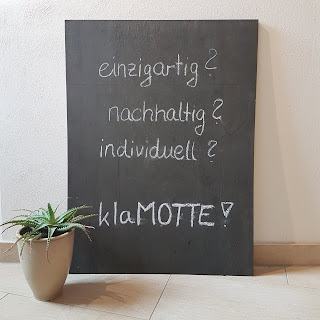 einzigartig?
nachhaltig?
individuell?
klaMOTTE!